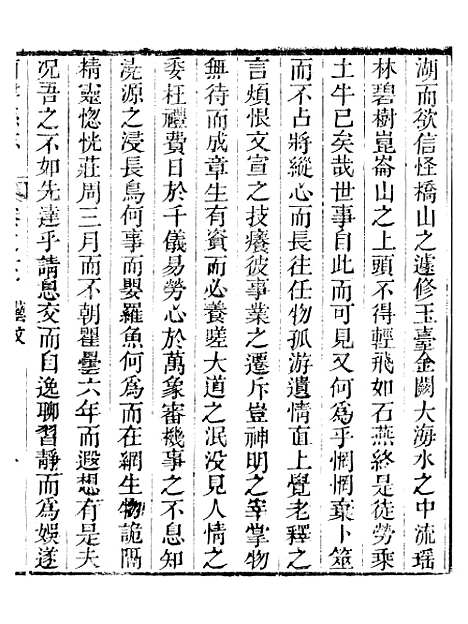 湖而欲信怪橋山之遽修玉臺金闕大海水之中流瑶
林碧樹崑崙山之上頭不得輕飛如石燕終是徒勞乘
土牛已矣哉世事自此而可見又何爲乎惘惘棄卜筮
而不占將縱心而長往任物孤游遺情直上覺老釋之
言煩恨文宣之技癢彼事業之遷斥豈神明之宰掌物
無待而成章生有資而必養嗟大道之泯没見人情之
委枉禮費日於千儀易勞心於萬象審機事之不息知
澆源之浸長鳥何事而嬰羅魚何爲而在網生物詭隔
精靈惚恍莊周三月而不朝瞿曇六年而遐想有是夫
况吾之不如先達乎請息交而自逸聊習靜而爲娛遂